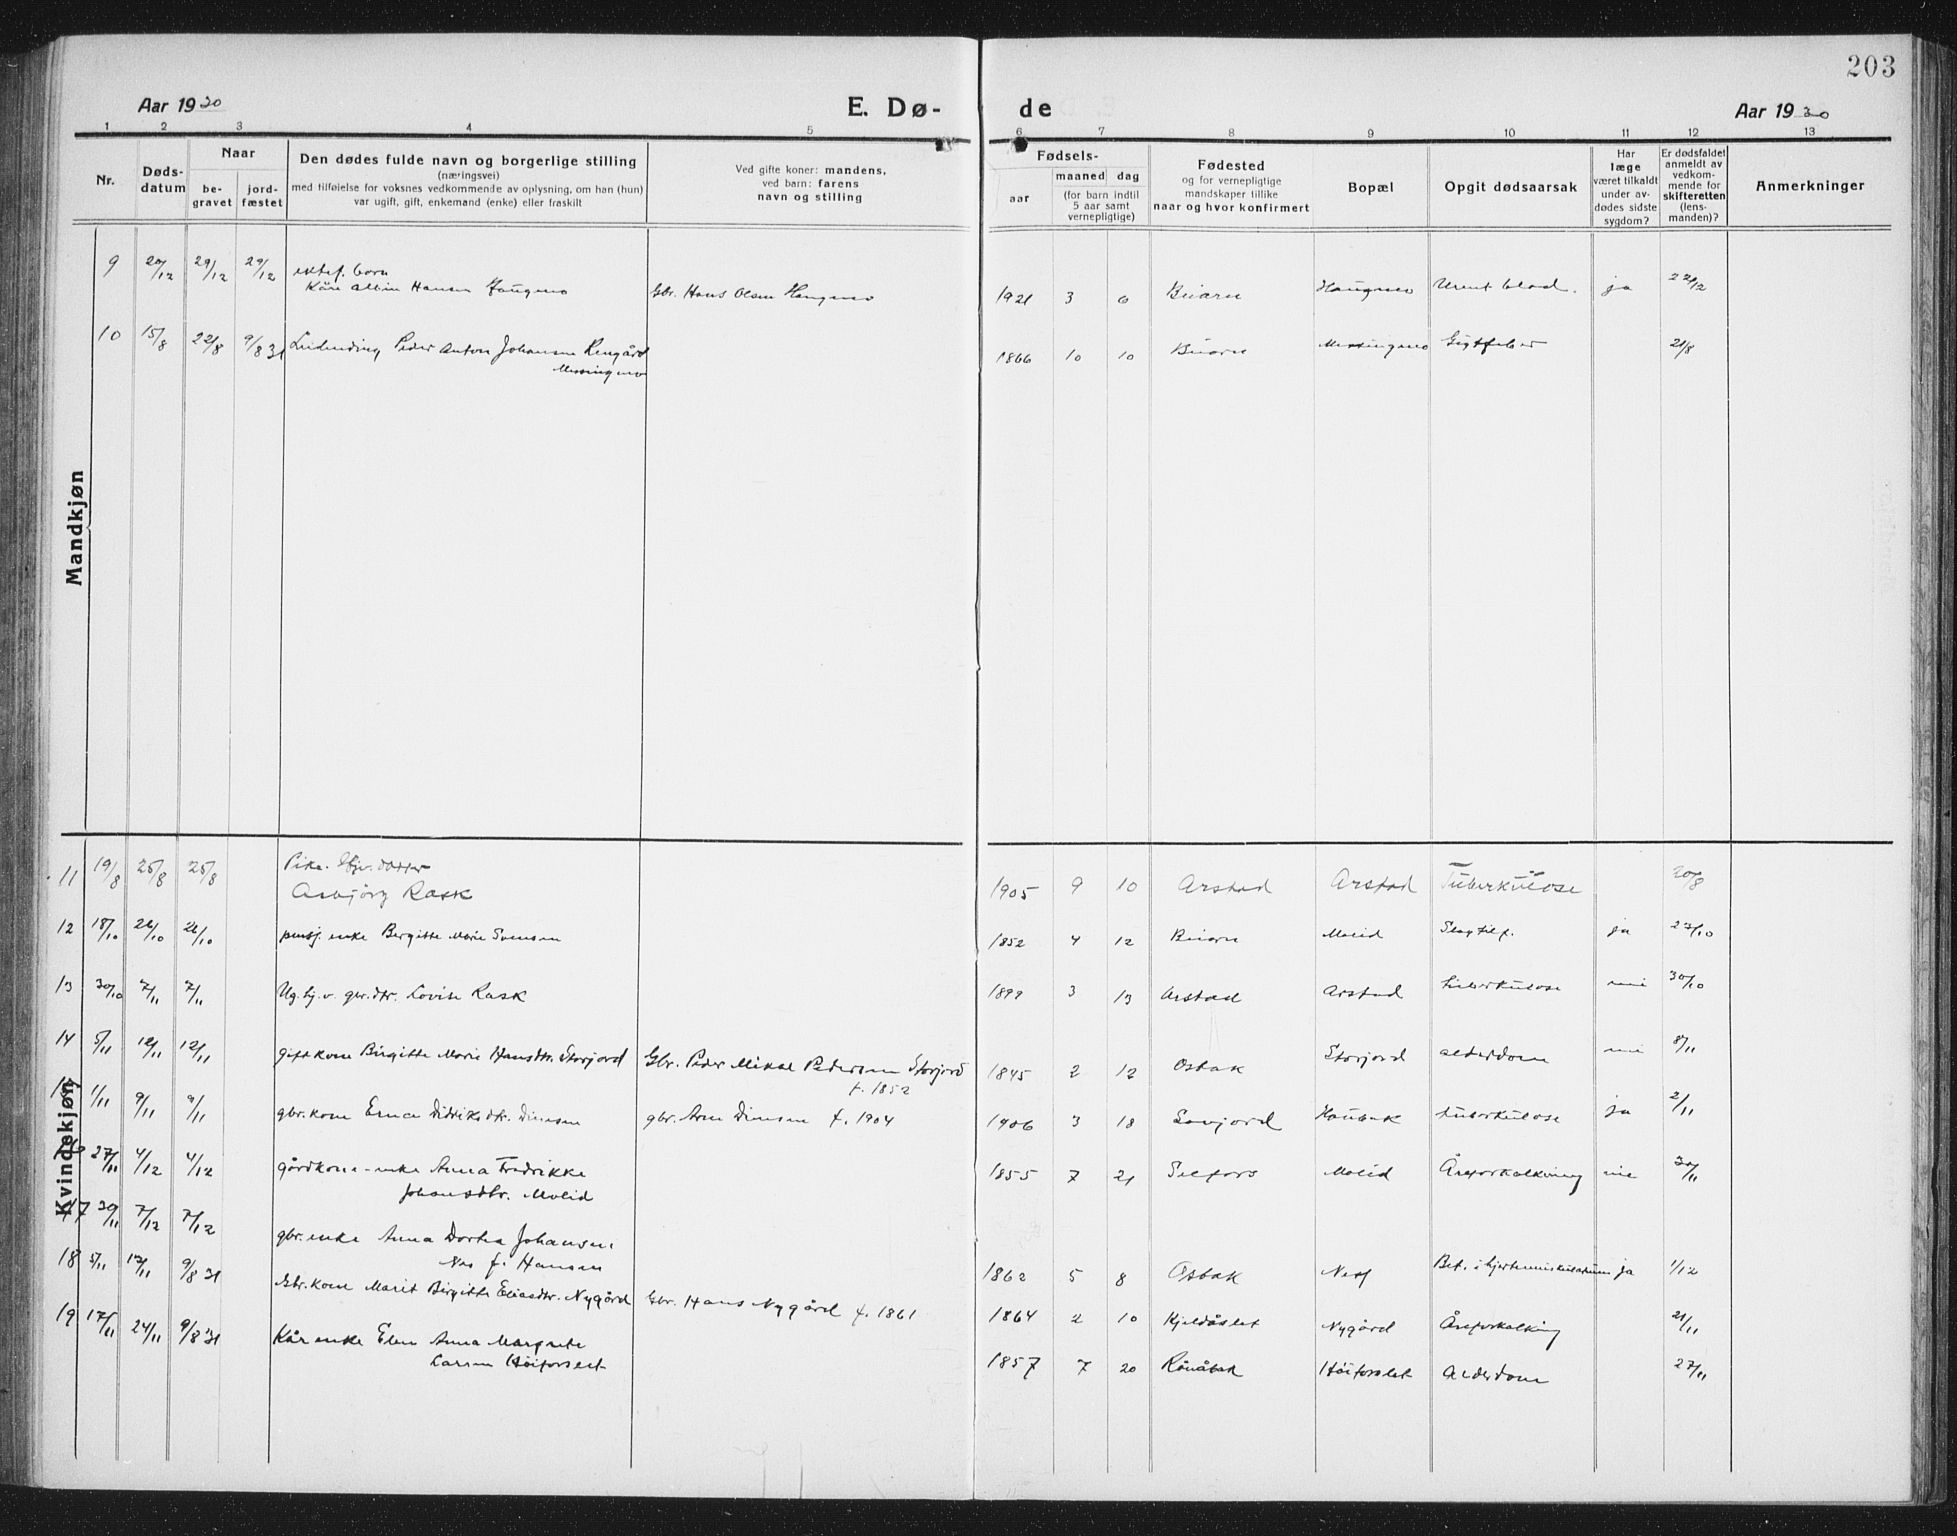 203
Aar 1930
E. Dø-
de
Aar 1930
1 2 3 4 5 6 7 8 9 10 11 12 13
Nr.
Døds-
datum
Naar
be-
gravet
jord-
fæstet
Den dødes fulde navn og borgerlige stilling
(næringsvei)
med tilføielse for voksnes vedkommende av oplysning, om han (hun)
var ugift, gift, enkemand (enke) eller fraskilt
Ved gifte koner: mandens,
ved barn: farens
navn og stilling
Fødsels-
aar
maaned dag
(for barn indtil
5 aar samt
vernepligtige)
Fødested
og for vernepligtige
mandskaper tillike
naar og hvor konfirmert
Bopæl
Opgit dødsaarsak
Har
læge
været tilkaldt
under av-
dødes sidste
sygdom?
Er dødsfaldet
anmeldt av
vedkom-
mende for
skifteretten
(lens-
manden)?
Anmerkninger
Mandkjøn
9 20/12 29/12 29/12 ektef. barn
Kåre Albin Hansen Haugmo Gbr. Hans Olsen Haugmo 1921 3 6 Beiarn Haugmo Urent blod. ja 22/12
10 15/8 22/8 9/8 31 Peder Anton Johansen Rengård
Messingmo 1866 10 10 Beiarn Messingmo Gigtfeber 21/8
Kvindekjøn
11 19/8 25/8 25/8 Pike. datter
Asbjörg Rask 1905 9 10 Arstad Arstad Tuberkulose 20/8
12 18/10 26/10 26/10 pensj. enke Bergitte Marie Svensen 1852 4 12 Beiarn Molid Slagtilf. ja 27/10
13 30/10 7/11 7/11 Ug. hj. v. gbr. dtr. Lovise Rask 1899 3 13 Arstad Arstad tuberkulose nei 30/10
14 5/11 12/11 12/11 gift kone Birgitte Marie Hansdtr. Storjord Gbr. Peder Mikal Pedersen Storjord
f. 1852 1845 2 12 Osbak Storjord alderdom nei 8/11
15 1/11 9/11 9/11 gbr. kone Erna Didriksdtr. Dimsen gbr. Arne Dimsen f. 1904 1906 3 18 Savjord Haubak tuberkulose ja 2/11
16 27/11 4/12 4/12 gårdkone-enke Anna Fredrikke
Johansdtr. Molid 1855 7 21 Selfors Molid Åreforkalkning nei 30/11
17 30/11 7/12 7/12 gbr. enke Anna Dortea Johansen
Nes f. Hansen 1862 5 8 Osbak Nes Bet. i hjertemuskulaturen ja 1/12
18 5/11 12/11 9/8 31 Gbr. kone Marit Birgitte Eliasdtr. Nygård Gbr. Hans Nygård f. 1861 1864 2 10 Kjeldåslet Nygård Åreforkalking 21/11
19 17/11 24/11 9/8 31 Kår enke Elen Anna Margrete
Larsen Höiforslet 1857 7 20 Rönåbak Höiforslet Alderdom 27/11